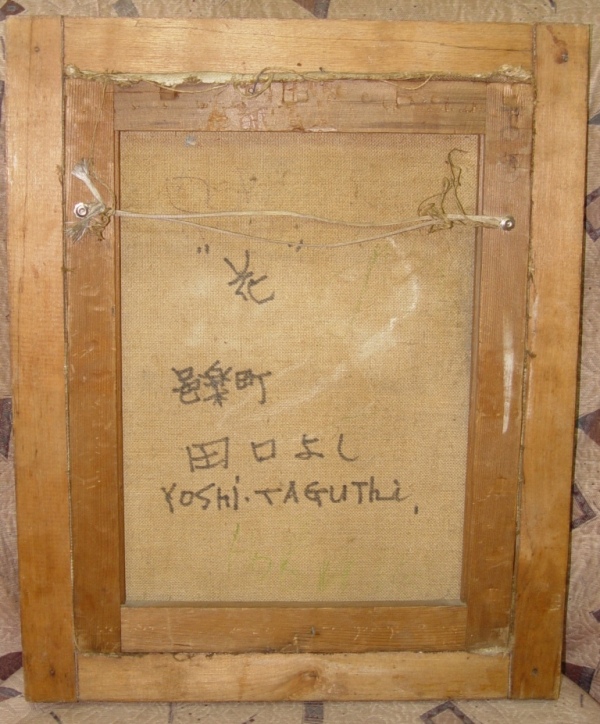 "花"
邑楽町
田口よし
YOSHi.TAGUThi,